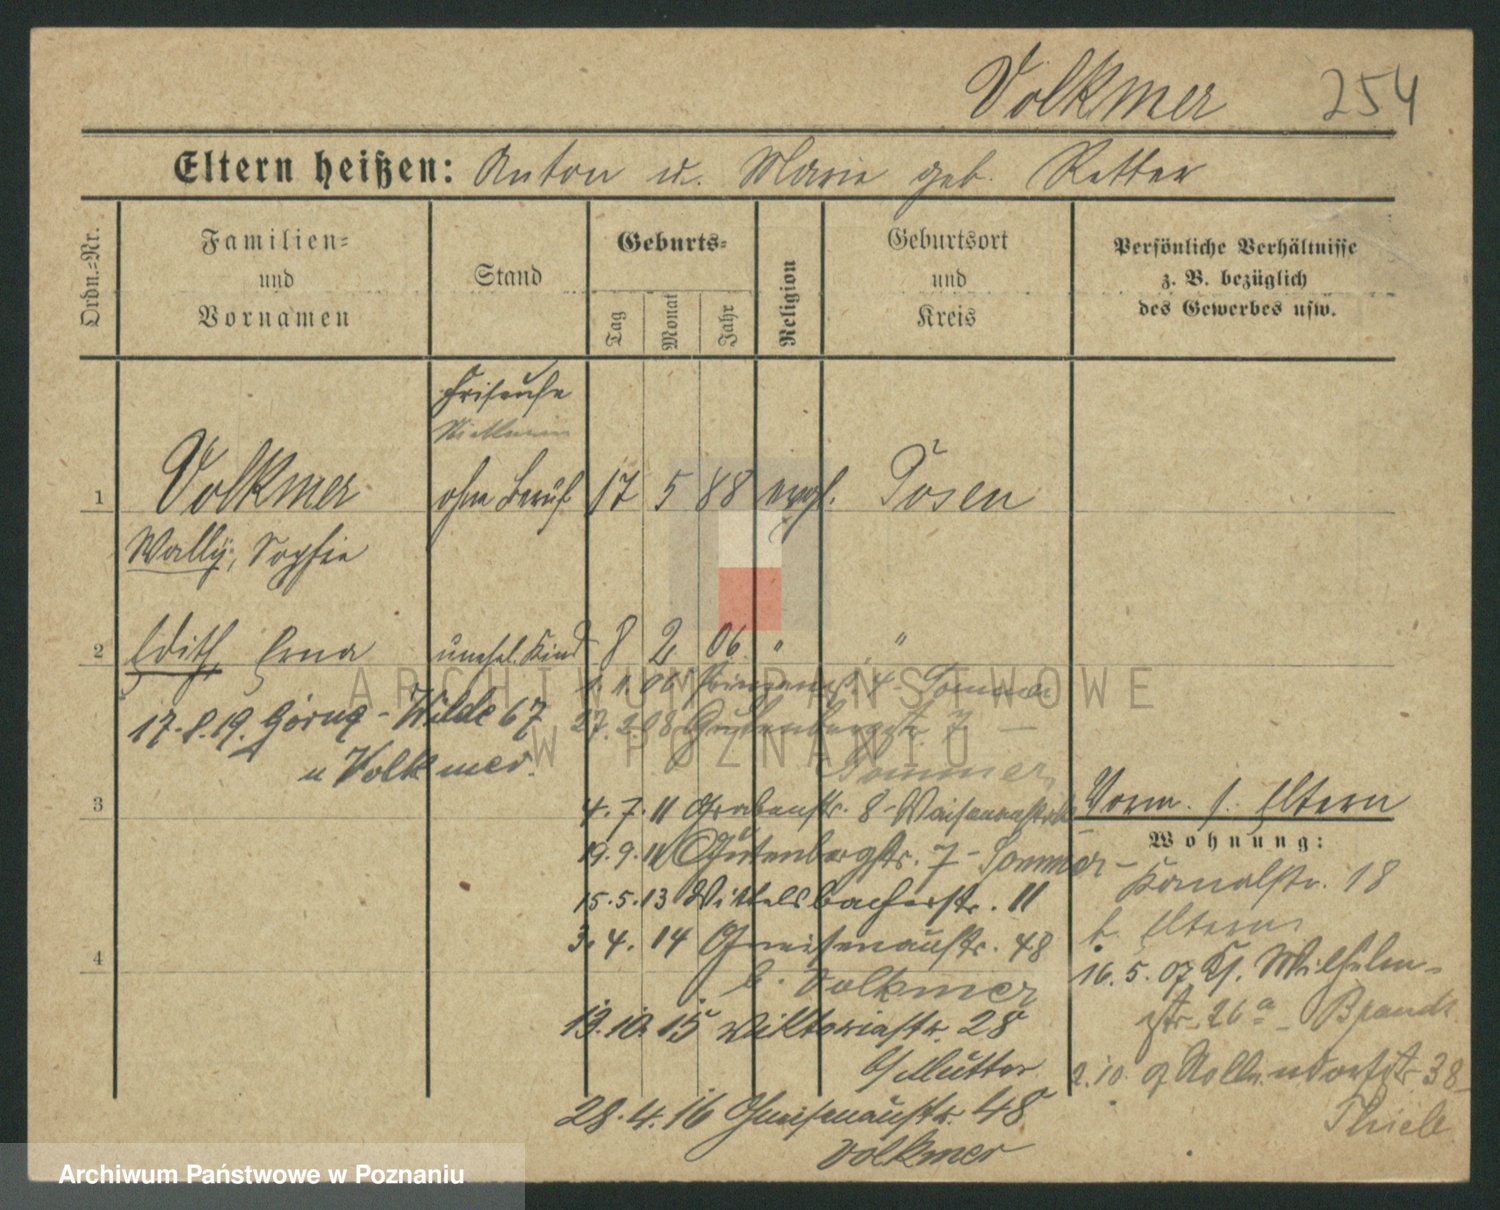 Volkmer 254
Eltern heißen: Anton u. Marie geb. Retter
Ordn.-Nr.
Familien-
und
Vornamen
Stand
Geburts-
Tag
Monat
Jahr
Religion
Geburtsort
und
Kreis
Persönliche Verhältnisse
z. B. bezüglich
des Gewerbes usw.
Friseuse
1 Volkmer ohne Beruf 17 5 88 evgl. Posen
Wally, Sophie
2 Edith Erna unehel. Kind 8 2 06 " "
ARCHIWUM PAŃSTWOWE
W POZNANIU
17.8.19. Görng - Wilde 67
u Volkmer.
27.2.08 Gutenbergstr 7 -
Sommer
3
4.7.11 Grabenstr. 8 -
19.9.11 Gutenbergstr. 7 - Sommer -
15.5.13 Wittelsbacherstr. 11
3.4.14 Gneisenaustr. 48
4
b. Volkmer
13.10.15 Viktoriastr. 28
b/ Mutter
28.4.16 Gneisenaustr. 48
Volkmer
Vorm. s. Eltern
Wohnung:
Kanalstr. 18
b. Eltern
16.5.07 Kl. Wilhelm-
str. 26a - Brandt
2.10. 07 Nollendorfstr 38-
Thiele
Archiwum Państwowe w Poznaniu